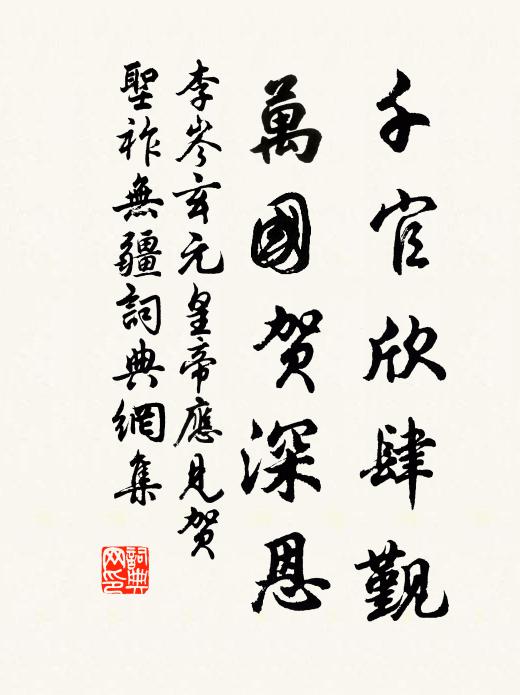 千官欣肆觐
萬國賀深恩
李岑玄元皇帝應見賀
聖祚無疆詞典網集
詞典网印